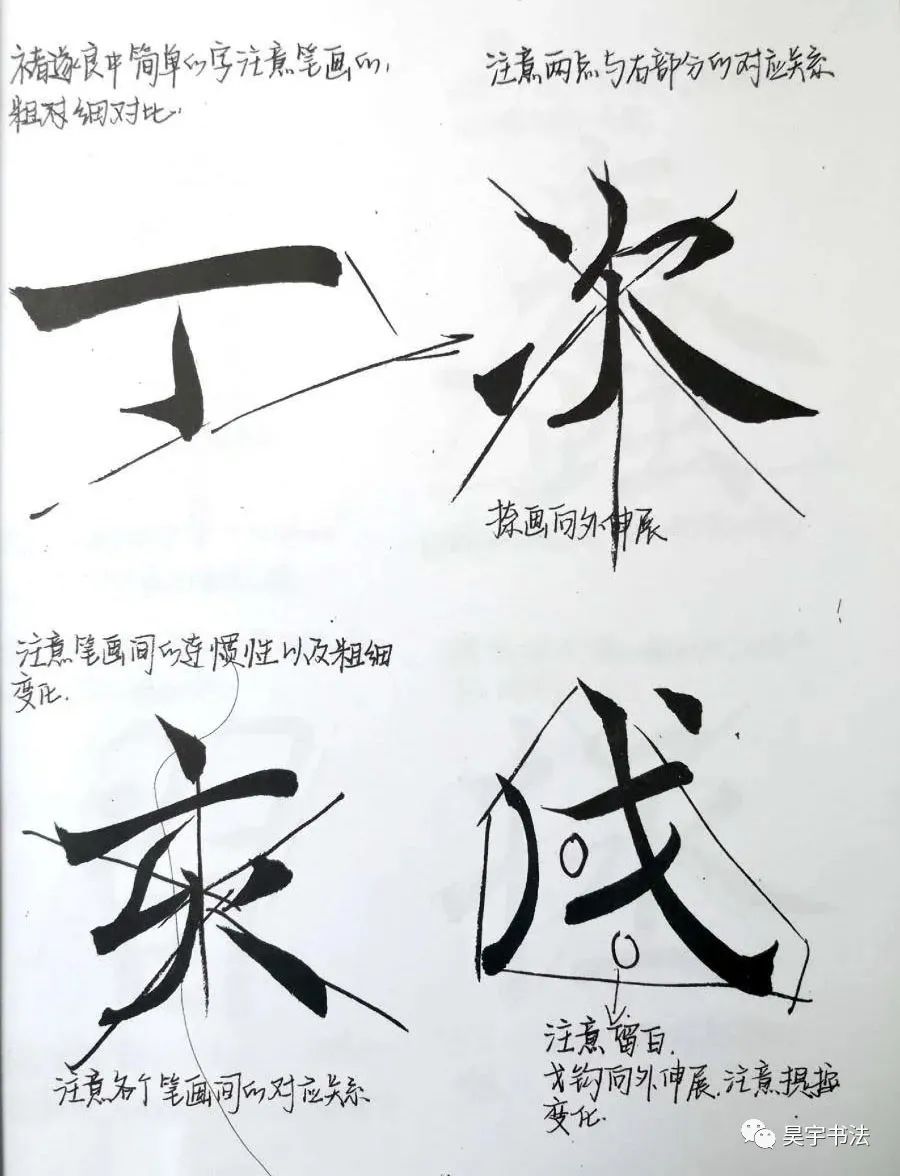 褚遂良中简单的字注意笔画的,
粗对细对比.
丁
注意两点与右部分的对应关系
次
捺画向外伸展
注意笔画间的连惯性以及粗细
变化.
亥
注意各个笔画间的对应关系
戊
注意留白.
戈钩向外伸展.注意提按
变化.
昊宇书法